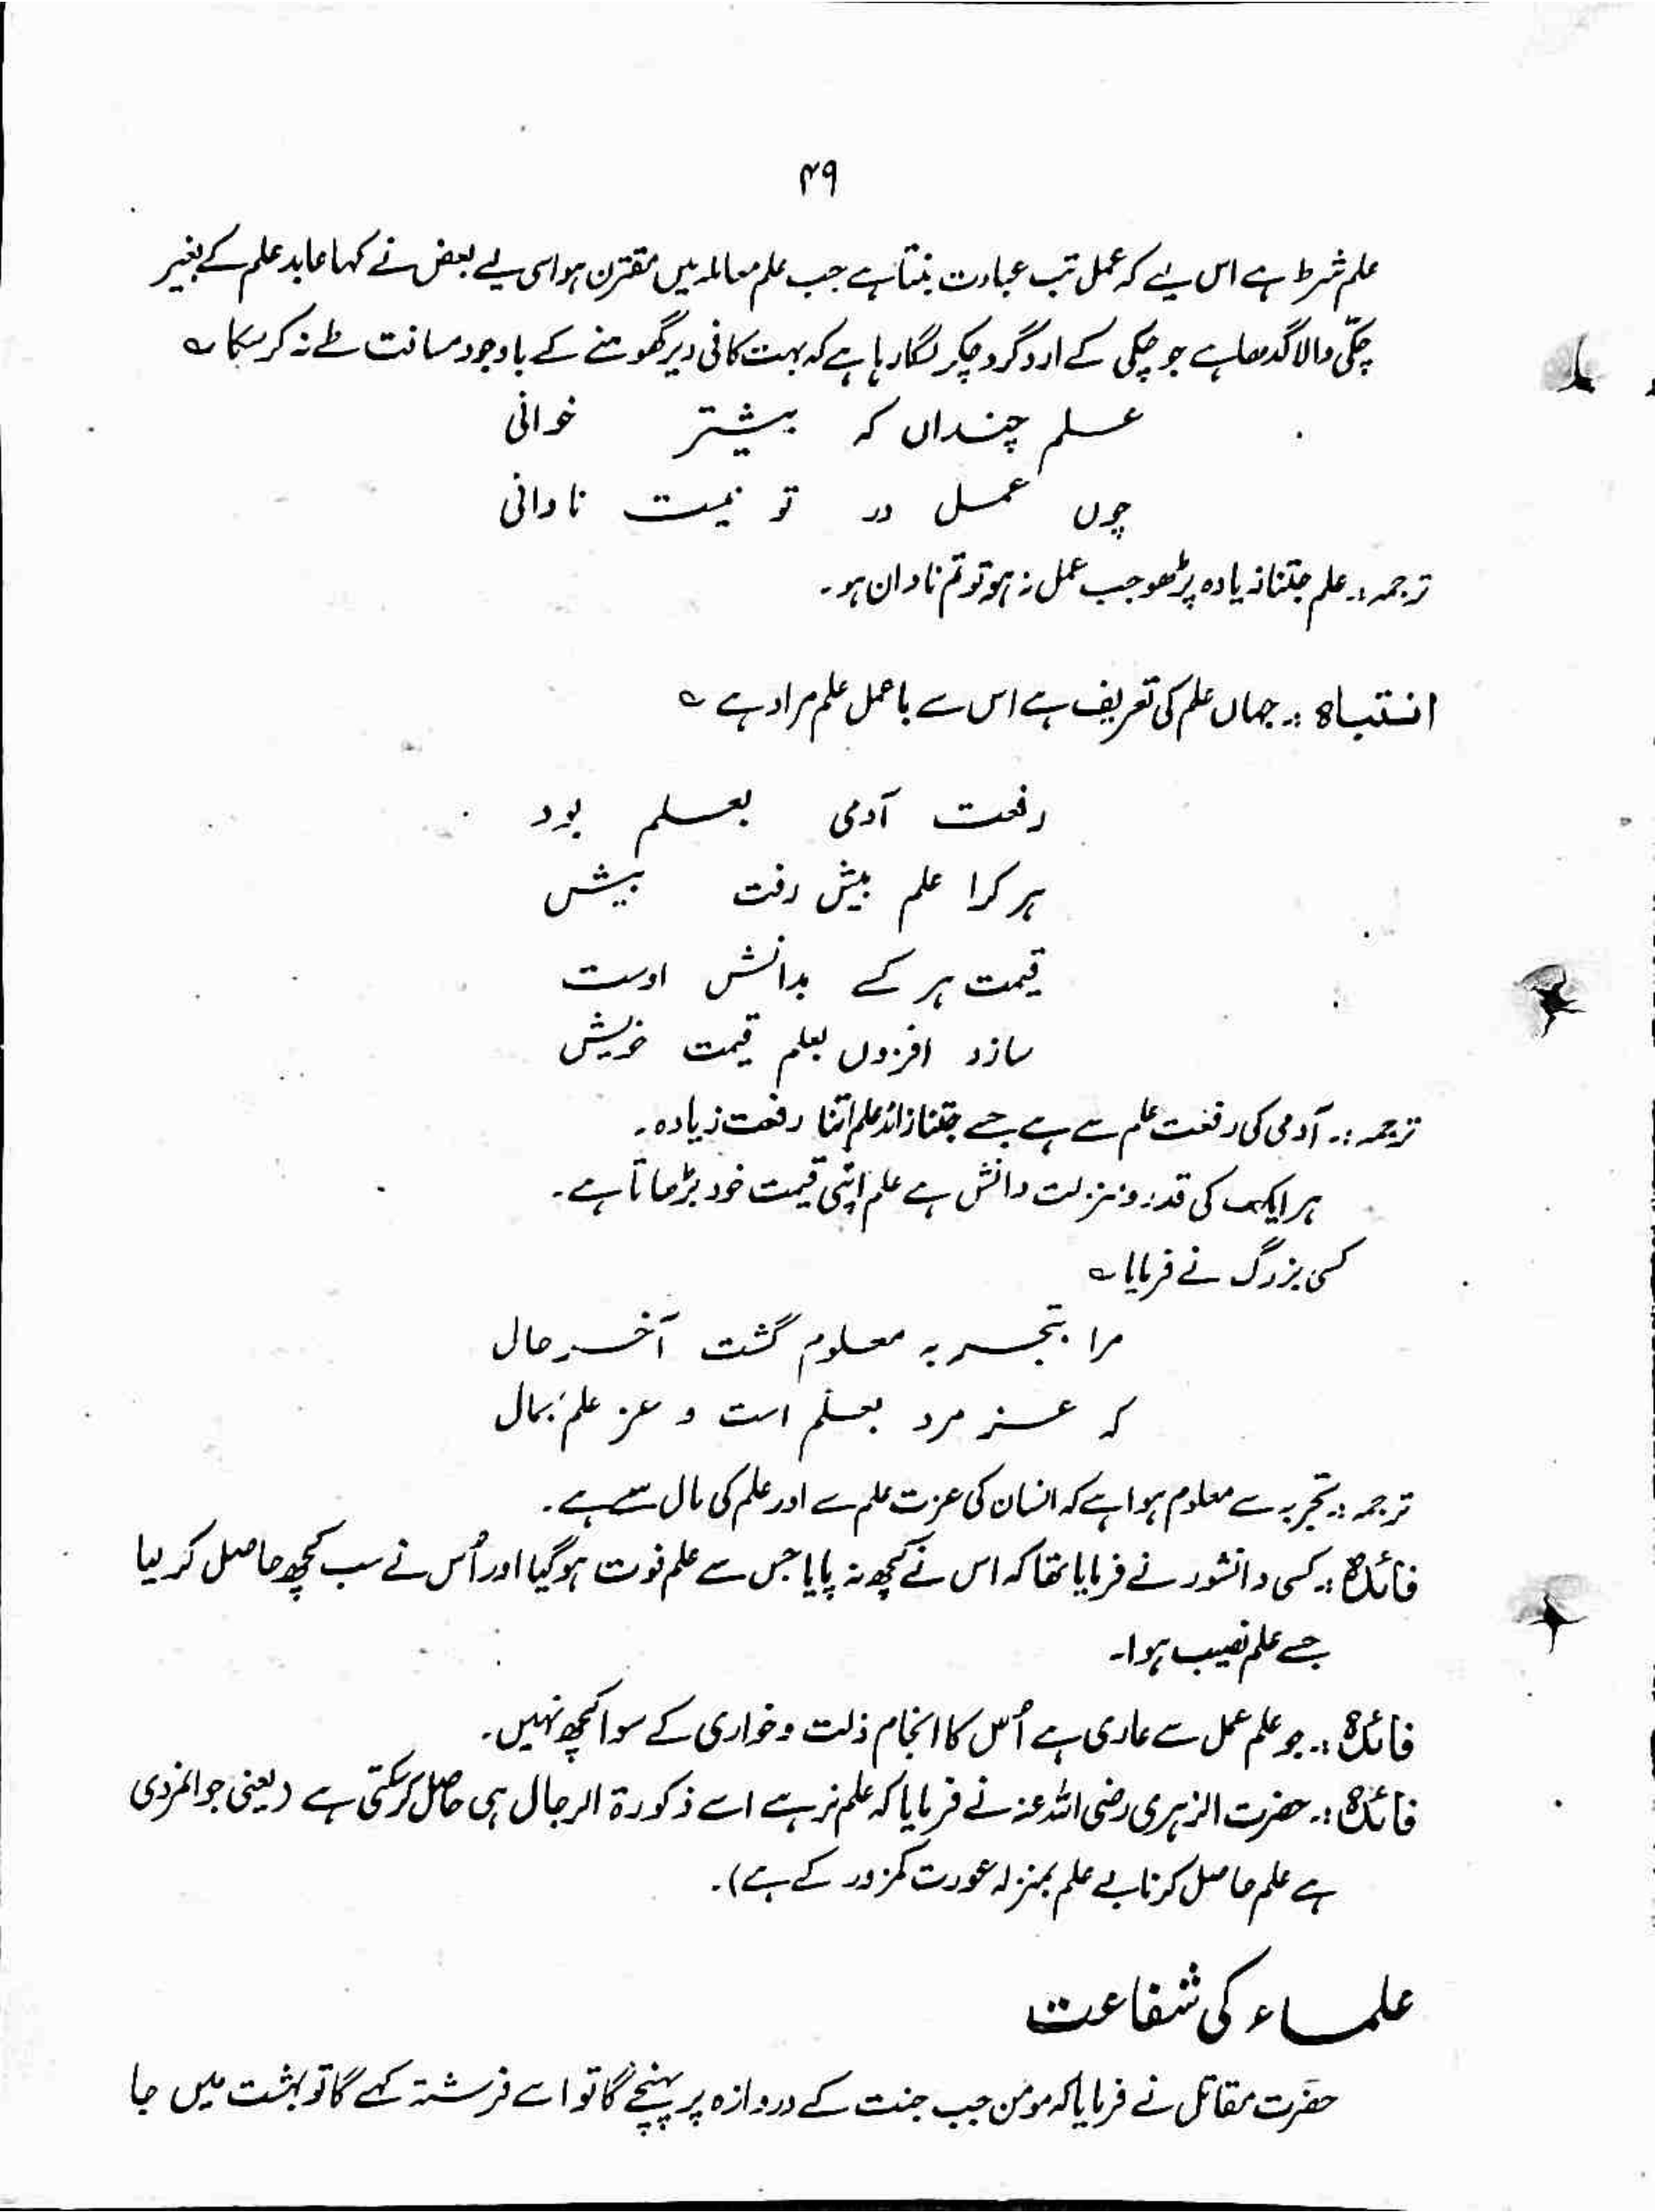 ۴۹
علم شرط ہے اس لیے کہ عمل تب عبادت بنتا ہے جب علم معاملہ میں مقترن ہو اسی لیے بعض نے کہا عابد علم کے بغیر
چکّی والا گدھا ہے جو چکی کے ارد گرد چکر لگا رہا ہے کہ بہت کافی دیر گھومنے کے باوجود مسافت طے نہ کر سکا ؎
علم چنداں کہ بیشتر خوانی
چوں عمل در تو نیست نادانی
ترجمہ:۔ علم جتنا زیادہ پڑھو جب عمل نہ ہو تو تم نادان ہو۔
انتباہ :۔ جہاں علم کی تعریف ہے اس سے باعمل علم مراد ہے ؎
رفعت آدمی بعلم بود
ہر کرا علم بیش رفت بیش
قیمت ہر کسے بدانش اوست
سازد افزوں بعلم قیمت خویش
ترجمہ :۔ آدمی کی رفعت علم سے ہے جسے جتنا زائد علم اتنا رفعت زیادہ۔
ہر ایک کی قدر و منزلت دانش ہے علم اپنی قیمت خود بڑھاتا ہے۔
کسی بزرگ نے فرمایا ؎
مرا بتجربہ معلوم گشت آخر حال
کہ عز مرد بعلم است و عز علم بمال
ترجمہ :۔ تجربہ سے معلوم ہوا ہے کہ انسان کی عزت علم سے اور علم کی مال سے ہے۔
فائدہ :۔ کسی دانشور نے فرمایا تھا کہ اس نے کچھ نہ پایا جس سے علم فوت ہو گیا اور اُس نے سب کچھ حاصل کر لیا
جسے علم نصیب ہوا۔
فائدہ :۔ جو علم عمل سے عاری ہے اُس کا انجام ذلت و خواری کے سوا کچھ نہیں۔
فائدہ :۔ حضرت الزہری رضی اللہ عنہ نے فرمایا کہ علم نر ہے اسے ذکورۃ الرجال ہی حاصل کر سکتی ہے (یعنی جوانمردی
ہے علم حاصل کرنا بے علم بمنزلہ عورت کمزور کے ہے)۔
علماء کی شفاعت
حضرت مقاتل نے فرمایا کہ مومن جب جنت کے دروازہ پر پہنچے گا تو اسے فرشتہ کہے گا تو بہشت میں جا